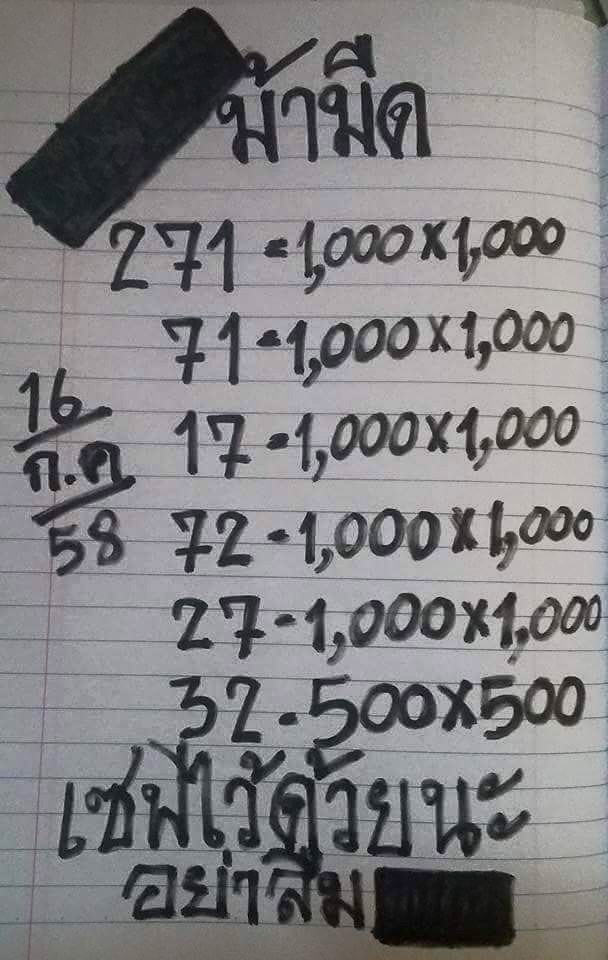 ม้ามืด
271=1,000x1,000
71=1,000x1,000
17=1,000x1,000
72-1,000x1,000
27-1,000x1,000
32-500x500
16
ก.ค
58
เซฟไว้ด้วยนะ
อย่าลืม